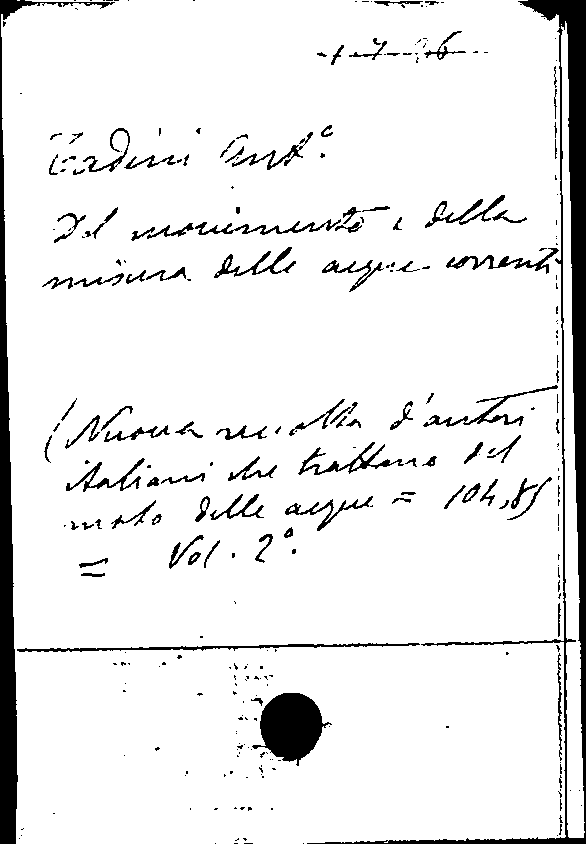 Tadini Ant°.
Del movimento e della
misura delle acque correnti
(Nuova raccolta d'autori
italiani che trattano del
moto delle acque = 104,85
= Vol. 2°.